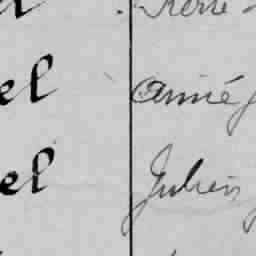 René
el Aimé
el Julien